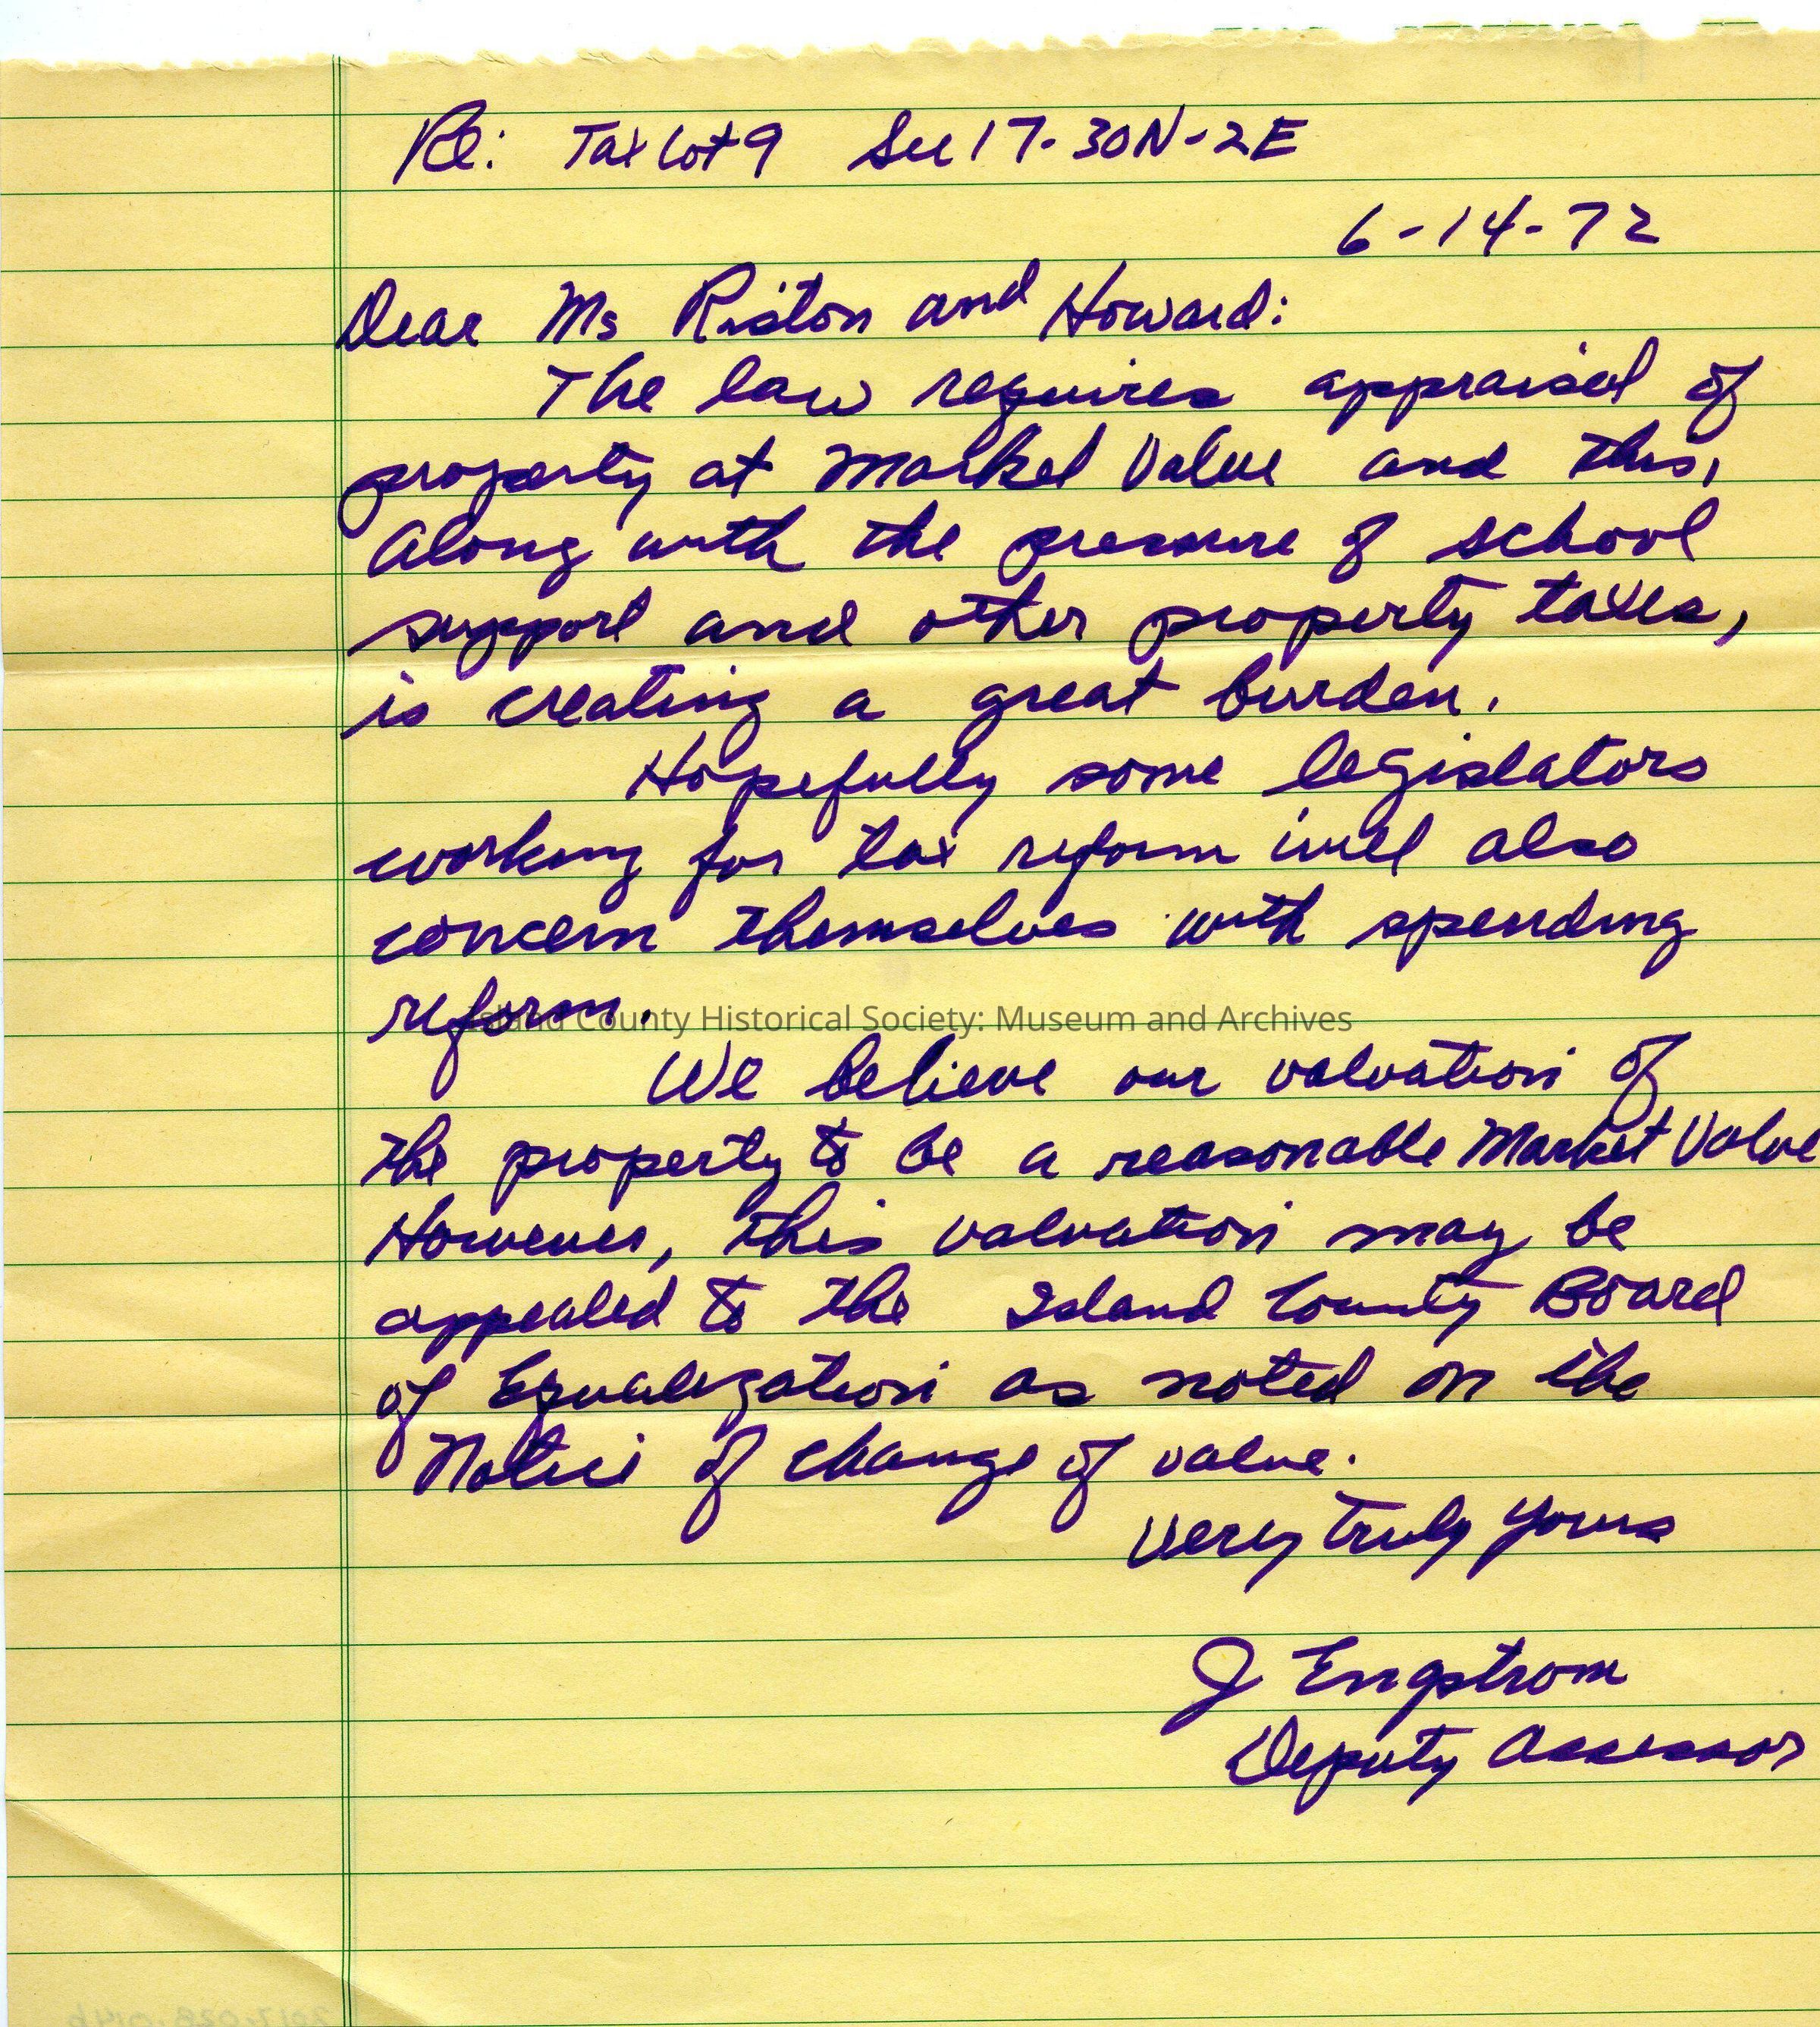 Re: Tax Lot 9 Sec 17-30N-2E
6-14-72
Dear Ms Riston and Howard:
The law requires appraisal of
property at Market Value and this,
along with the pressure of school
support and other property taxes,
is creating a great burden.
Hopefully some legislators
working for tax reform will also
concern themselves with spending
reform.
Island County Historical Society: Museum and Archives
We believe our valuation of
the property to be a reasonable Market Value
However, this valuation may be
appealed to the Island County Board
of Equalization as noted on the
Notice of change of value.
Very truly yours
J Engstrom
Deputy Assessor